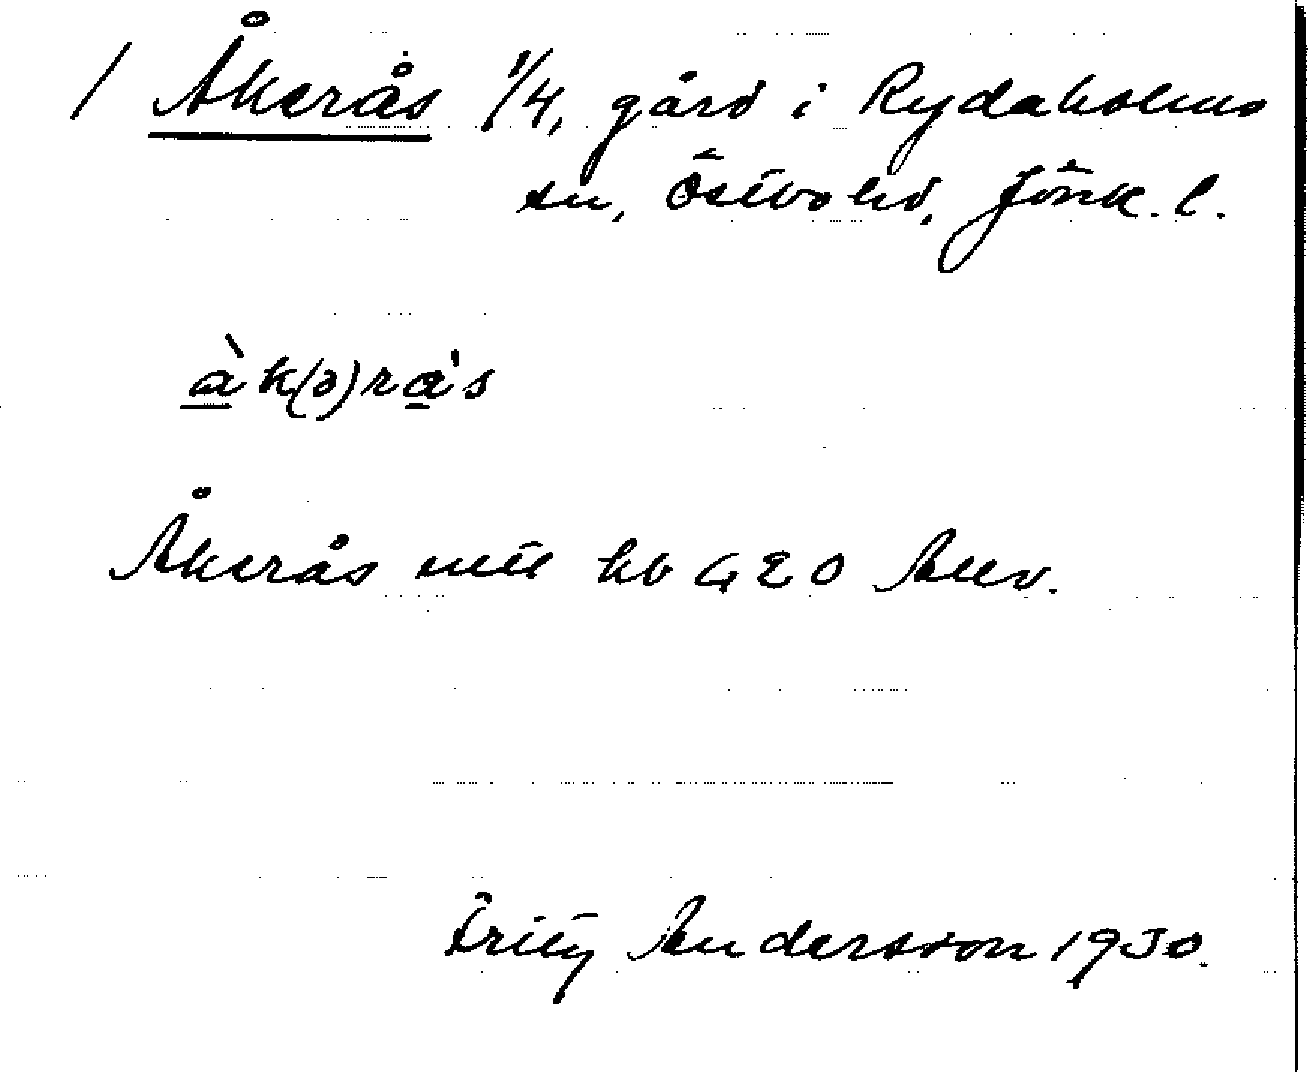 / Åkerås 1/4, gård i Rydaholms
sn, Östbo hd, Jönk. l.
àk(ə)ra's
Åkerås mtl kb 420 Allv.
Fritz Andersson 1930.